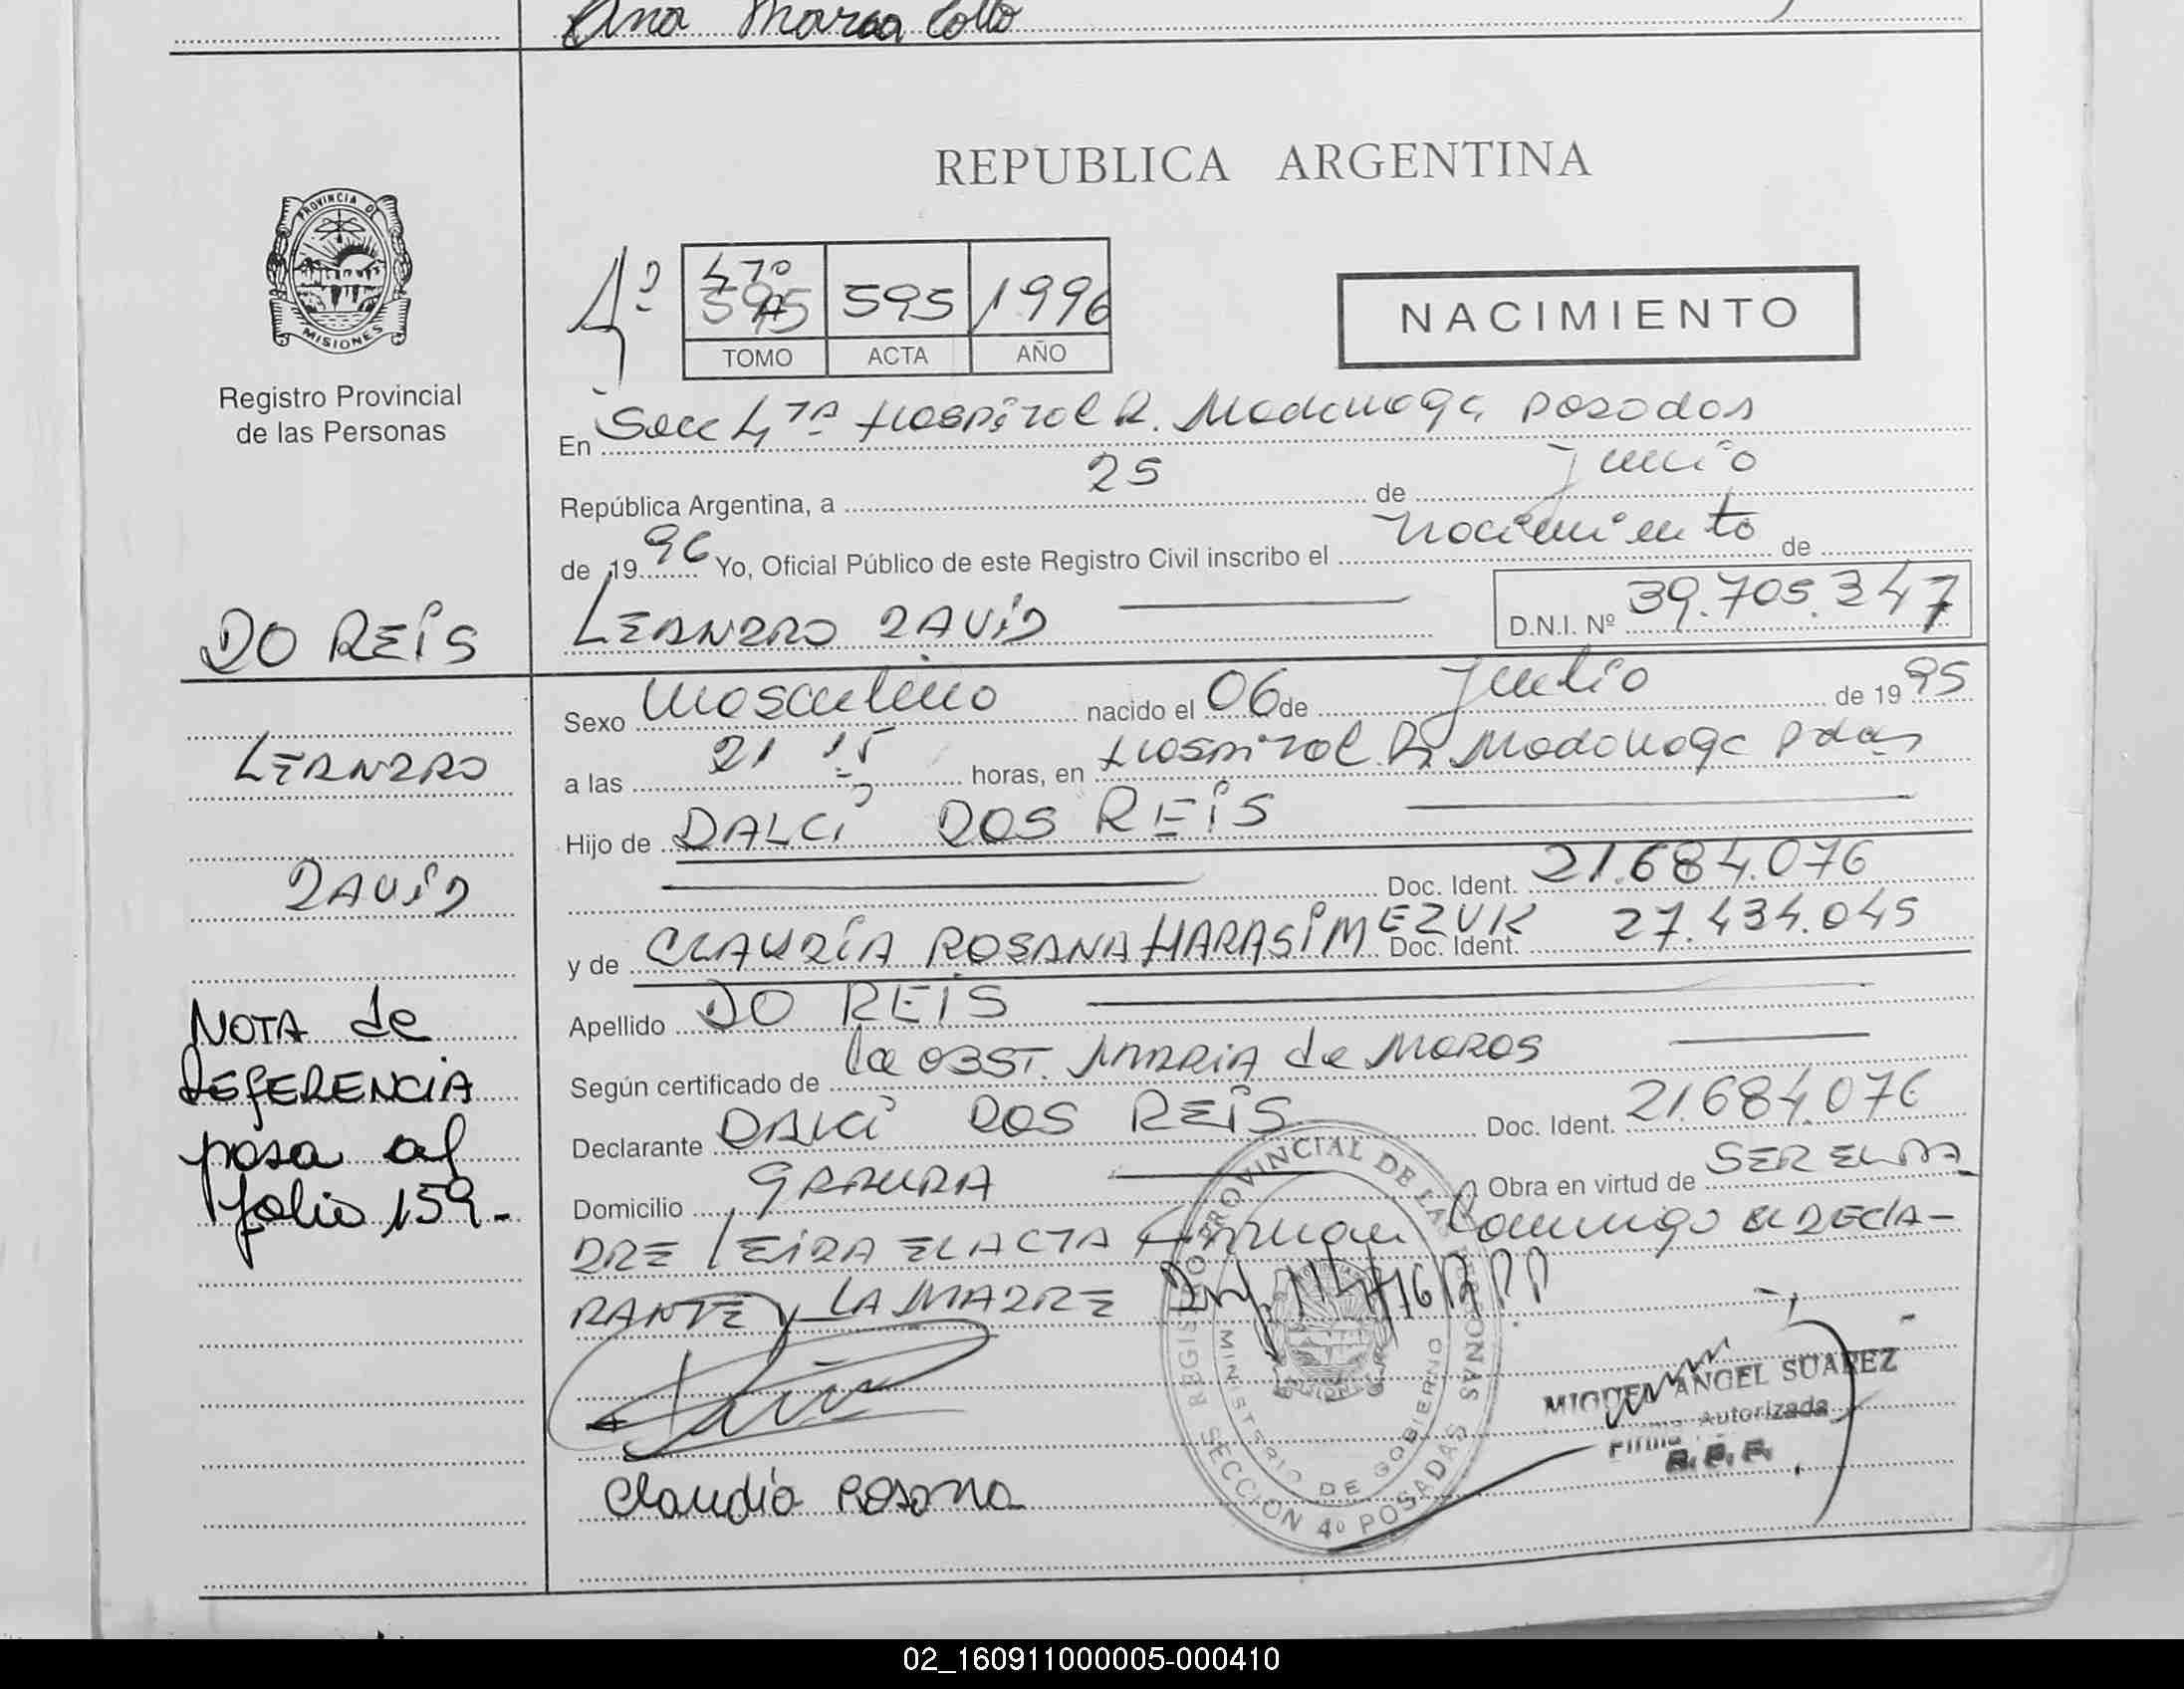 Ana Maria Cotto
PROVINCIA DE
MISIONES
Registro Provincial
de las Personas
REPUBLICA ARGENTINA
4º 47º 595 A 595 1996
TOMO ACTA AÑO
NACIMIENTO
En Secc 4ta Hospital R. Madariaga Posadas
República Argentina, a 25 de Junio
de 1996 Yo, Oficial Público de este Registro Civil inscribo el nacimiento de
DO REIS
LEANDRO DAVID D.N.I. Nº 39.705.347
LEANDRO
DAVID
NOTA de
REFERENCIA
pasa al
folio 159-
Sexo masculino nacido el 06 de Julio de 1995
a las 21 15 horas, en Hospital R. Madariaga Pdas
Hijo de DALCI DOS REIS
Doc. Ident. 21.684.076
y de CLAUDIA ROSANA HARASIMEZUK Doc. Ident. 27.434.045
Apellido DO REIS
Según certificado de la OBST. MARIA de MOROS
Declarante DALCI DOS REIS Doc. Ident. 21.684.076
Domicilio GARUPA Obra en virtud de SER EL PA
DRE LEIDA EL ACTA Firman Conmigo EL DECLA-
RANTE y LA MADRE
REGISTRO PROVINCIAL DE LAS PERSONAS
MINISTERIO DE GOBIERNO
SECCION 4º POSADAS
MIGUEL ANGEL SUAREZ
Firma Autorizada
R.P.P.
Claudia Rosana
02_160911000005-000410